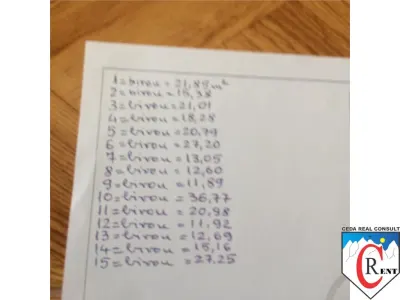 1 = birou = 21,89 m²
2 = birou = 15,38
3 = birou = 21,01
4 = birou = 18,28
5 = birou = 20,79
6 = birou = 27,20
7 = birou = 13,05
8 = birou = 12,60
9 = birou = 11,89
10 = birou = 36,77
11 = birou = 20,98
12 = birou = 11,92
13 = birou = 12,69
14 = birou = 15,16
15 = birou = 27.25
CEDA REAL CONSULT
C
RENT